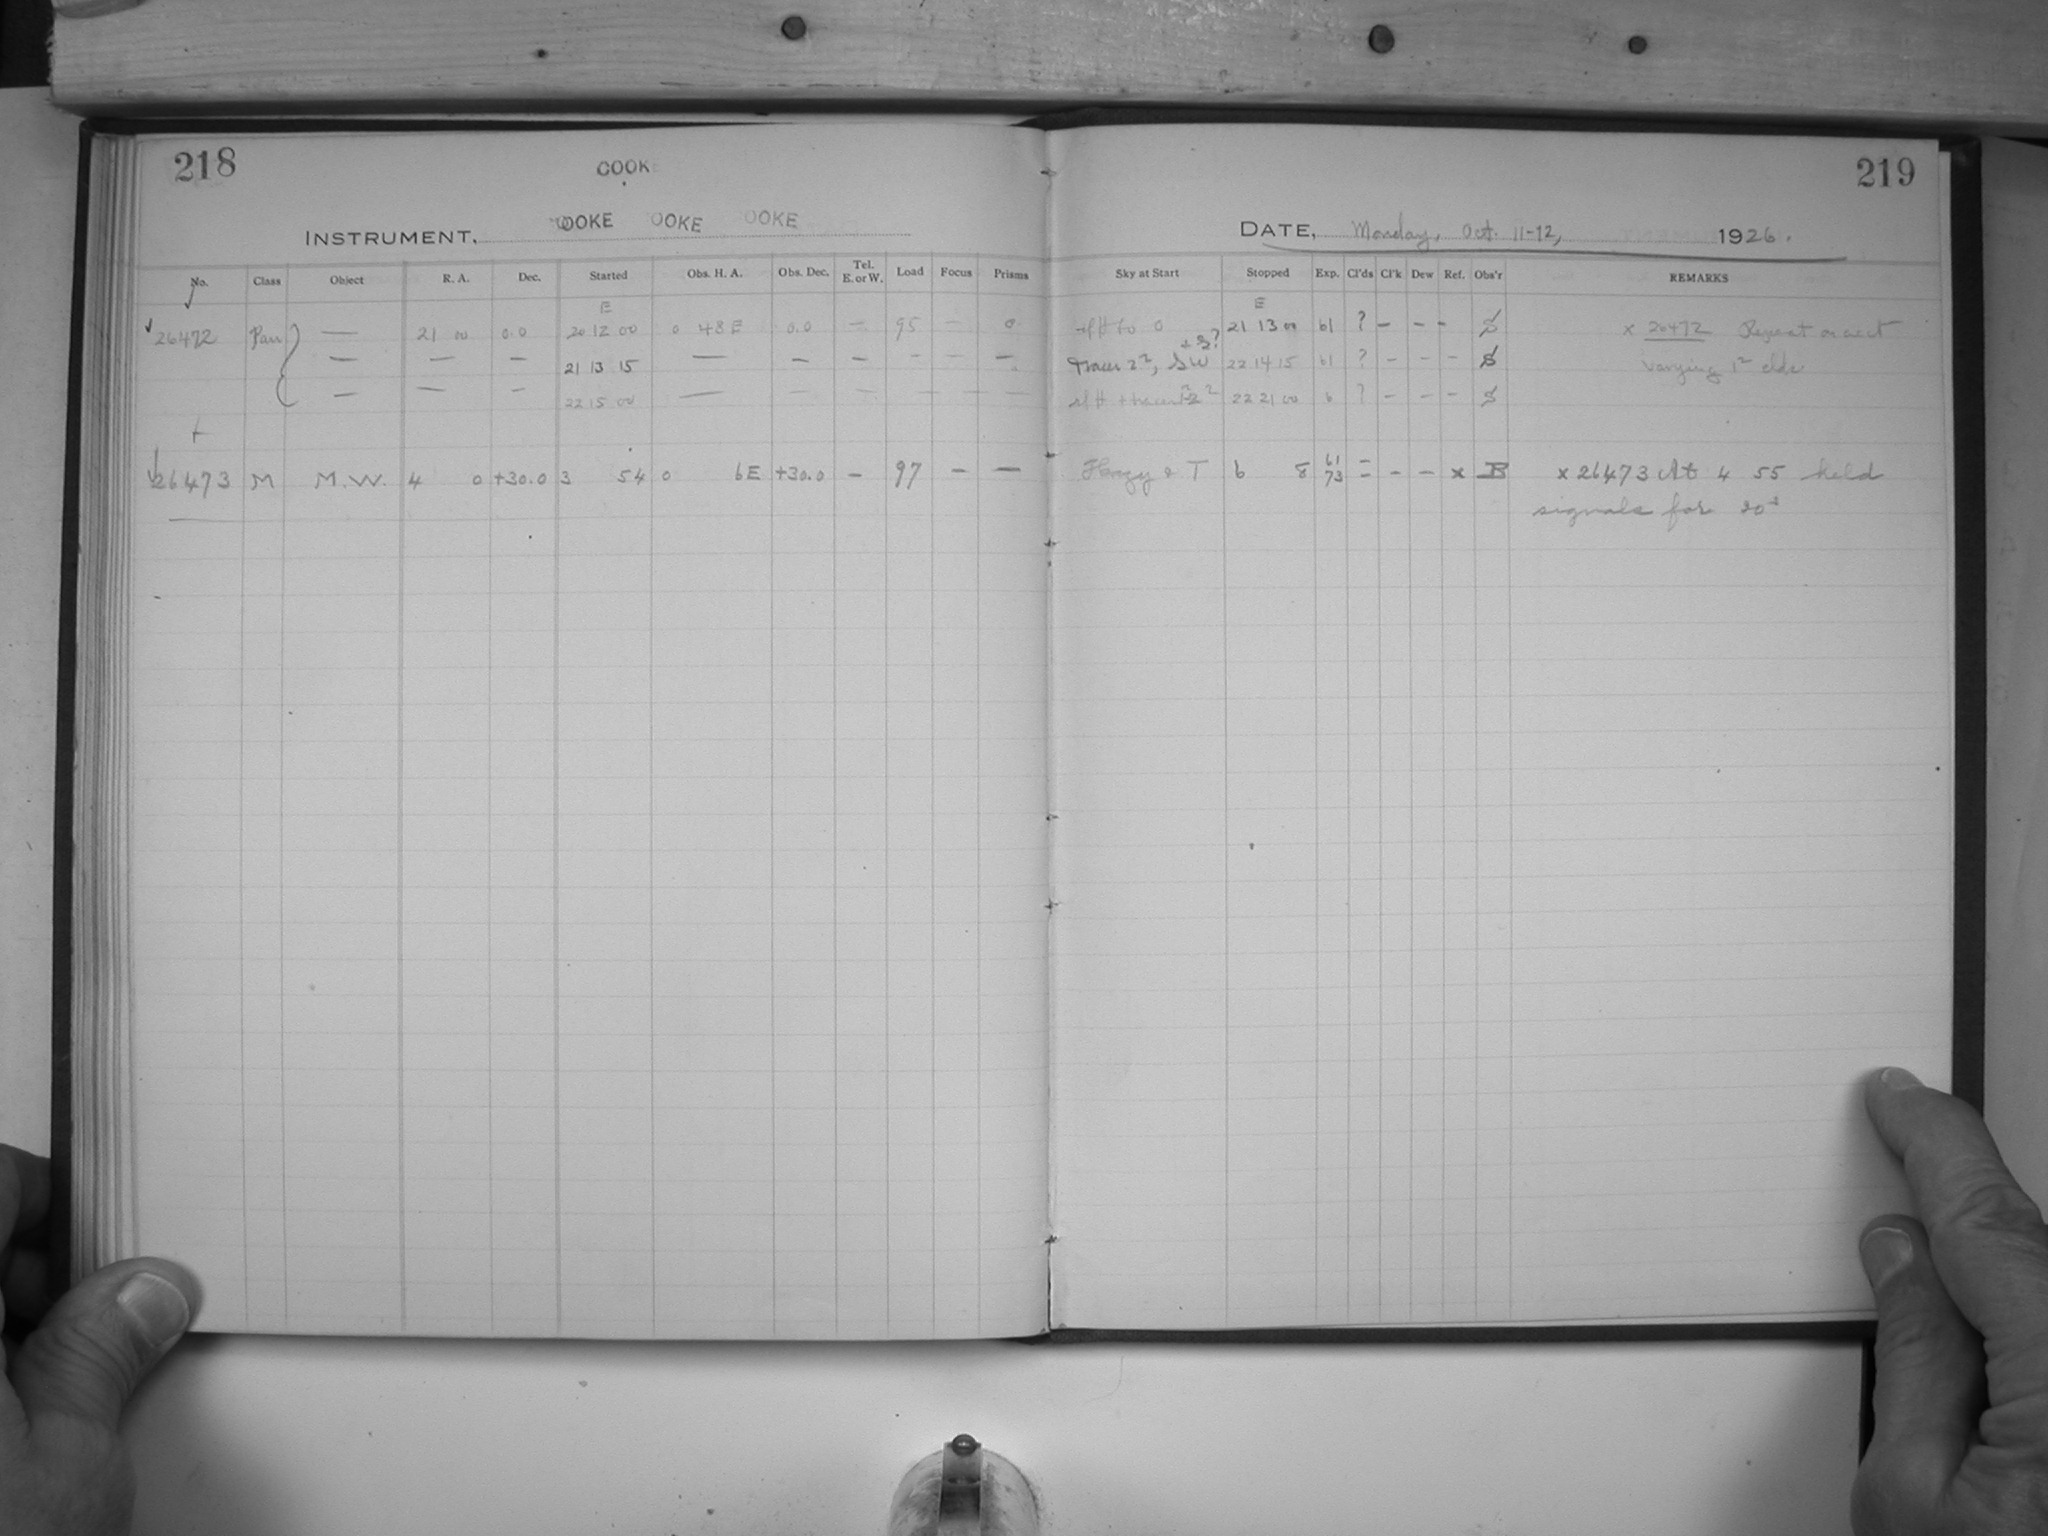 218
COOK
INSTRUMENT, OOKE OOKE OOKE
No. Class Object R. A. Dec. Started Obs. H. A. Obs. Dec. Tel. E. or W. Load Focus Prisms
E
26472 Pan — 21 00 0.0 20 12 00 0 48 E 0.0 — 95 — 0
— — — 21 13 15 — — — — — —
— — — 22 15 00 — — — — — —
26473 M M.W. 4 0 +30.0 3 54 0 6E +30.0 — 97 — —
219
DATE, Monday, Oct. 11-12, 1926.
Sky at Start Stopped Exp. Cl'ds Cl'k Dew Ref. Obs'r REMARKS
E
21 13 00 61 ? — — — x 26472 Repeat on acct
+ 3?
Traces 2², SW 22 14 15 61 ? - - - S varying 1² clds
22 21 00 6 ? - - - S
Hazy & T 6 8 61 73 = = - - x B x 26473 At 4 55 held
signals for 20ˢ